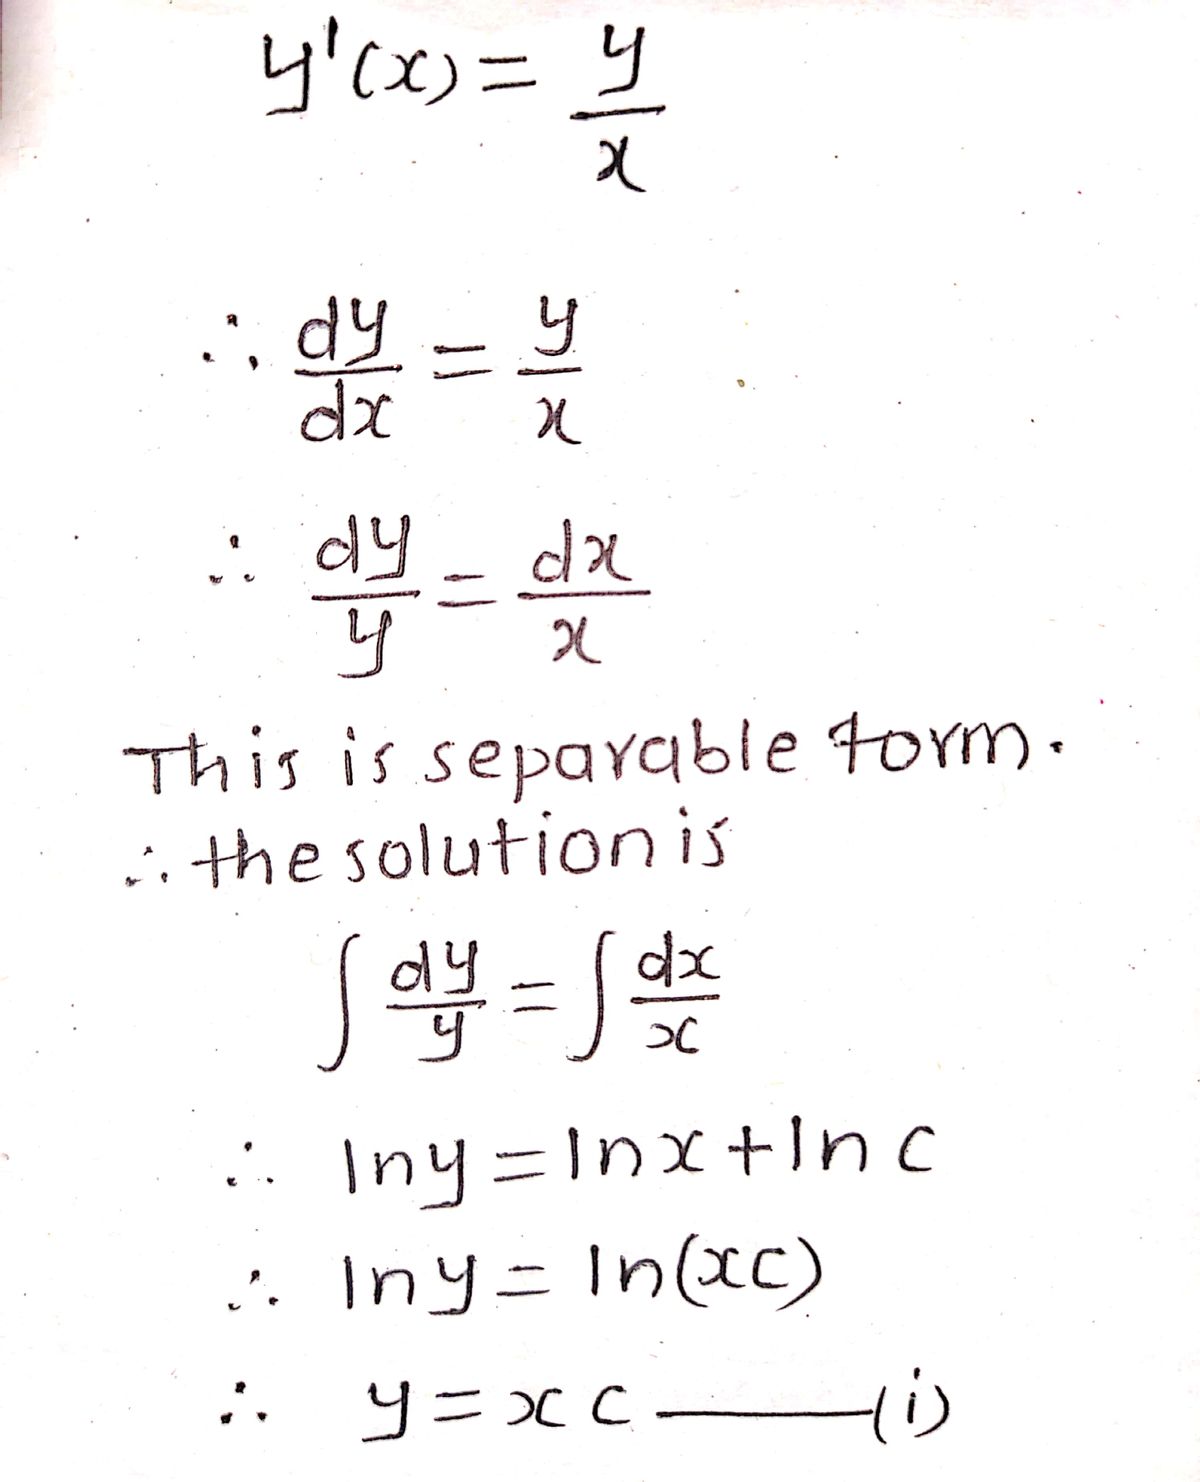 y'(x) = y/x
∴ dy/dx = y/x
∴ dy/y = dx/x
This is separable form.
∴ the solution is
∫ dy/y = ∫ dx/x
∴ lny = lnx + ln c
∴ lny = ln(xc)
∴ y = xc ———(i)